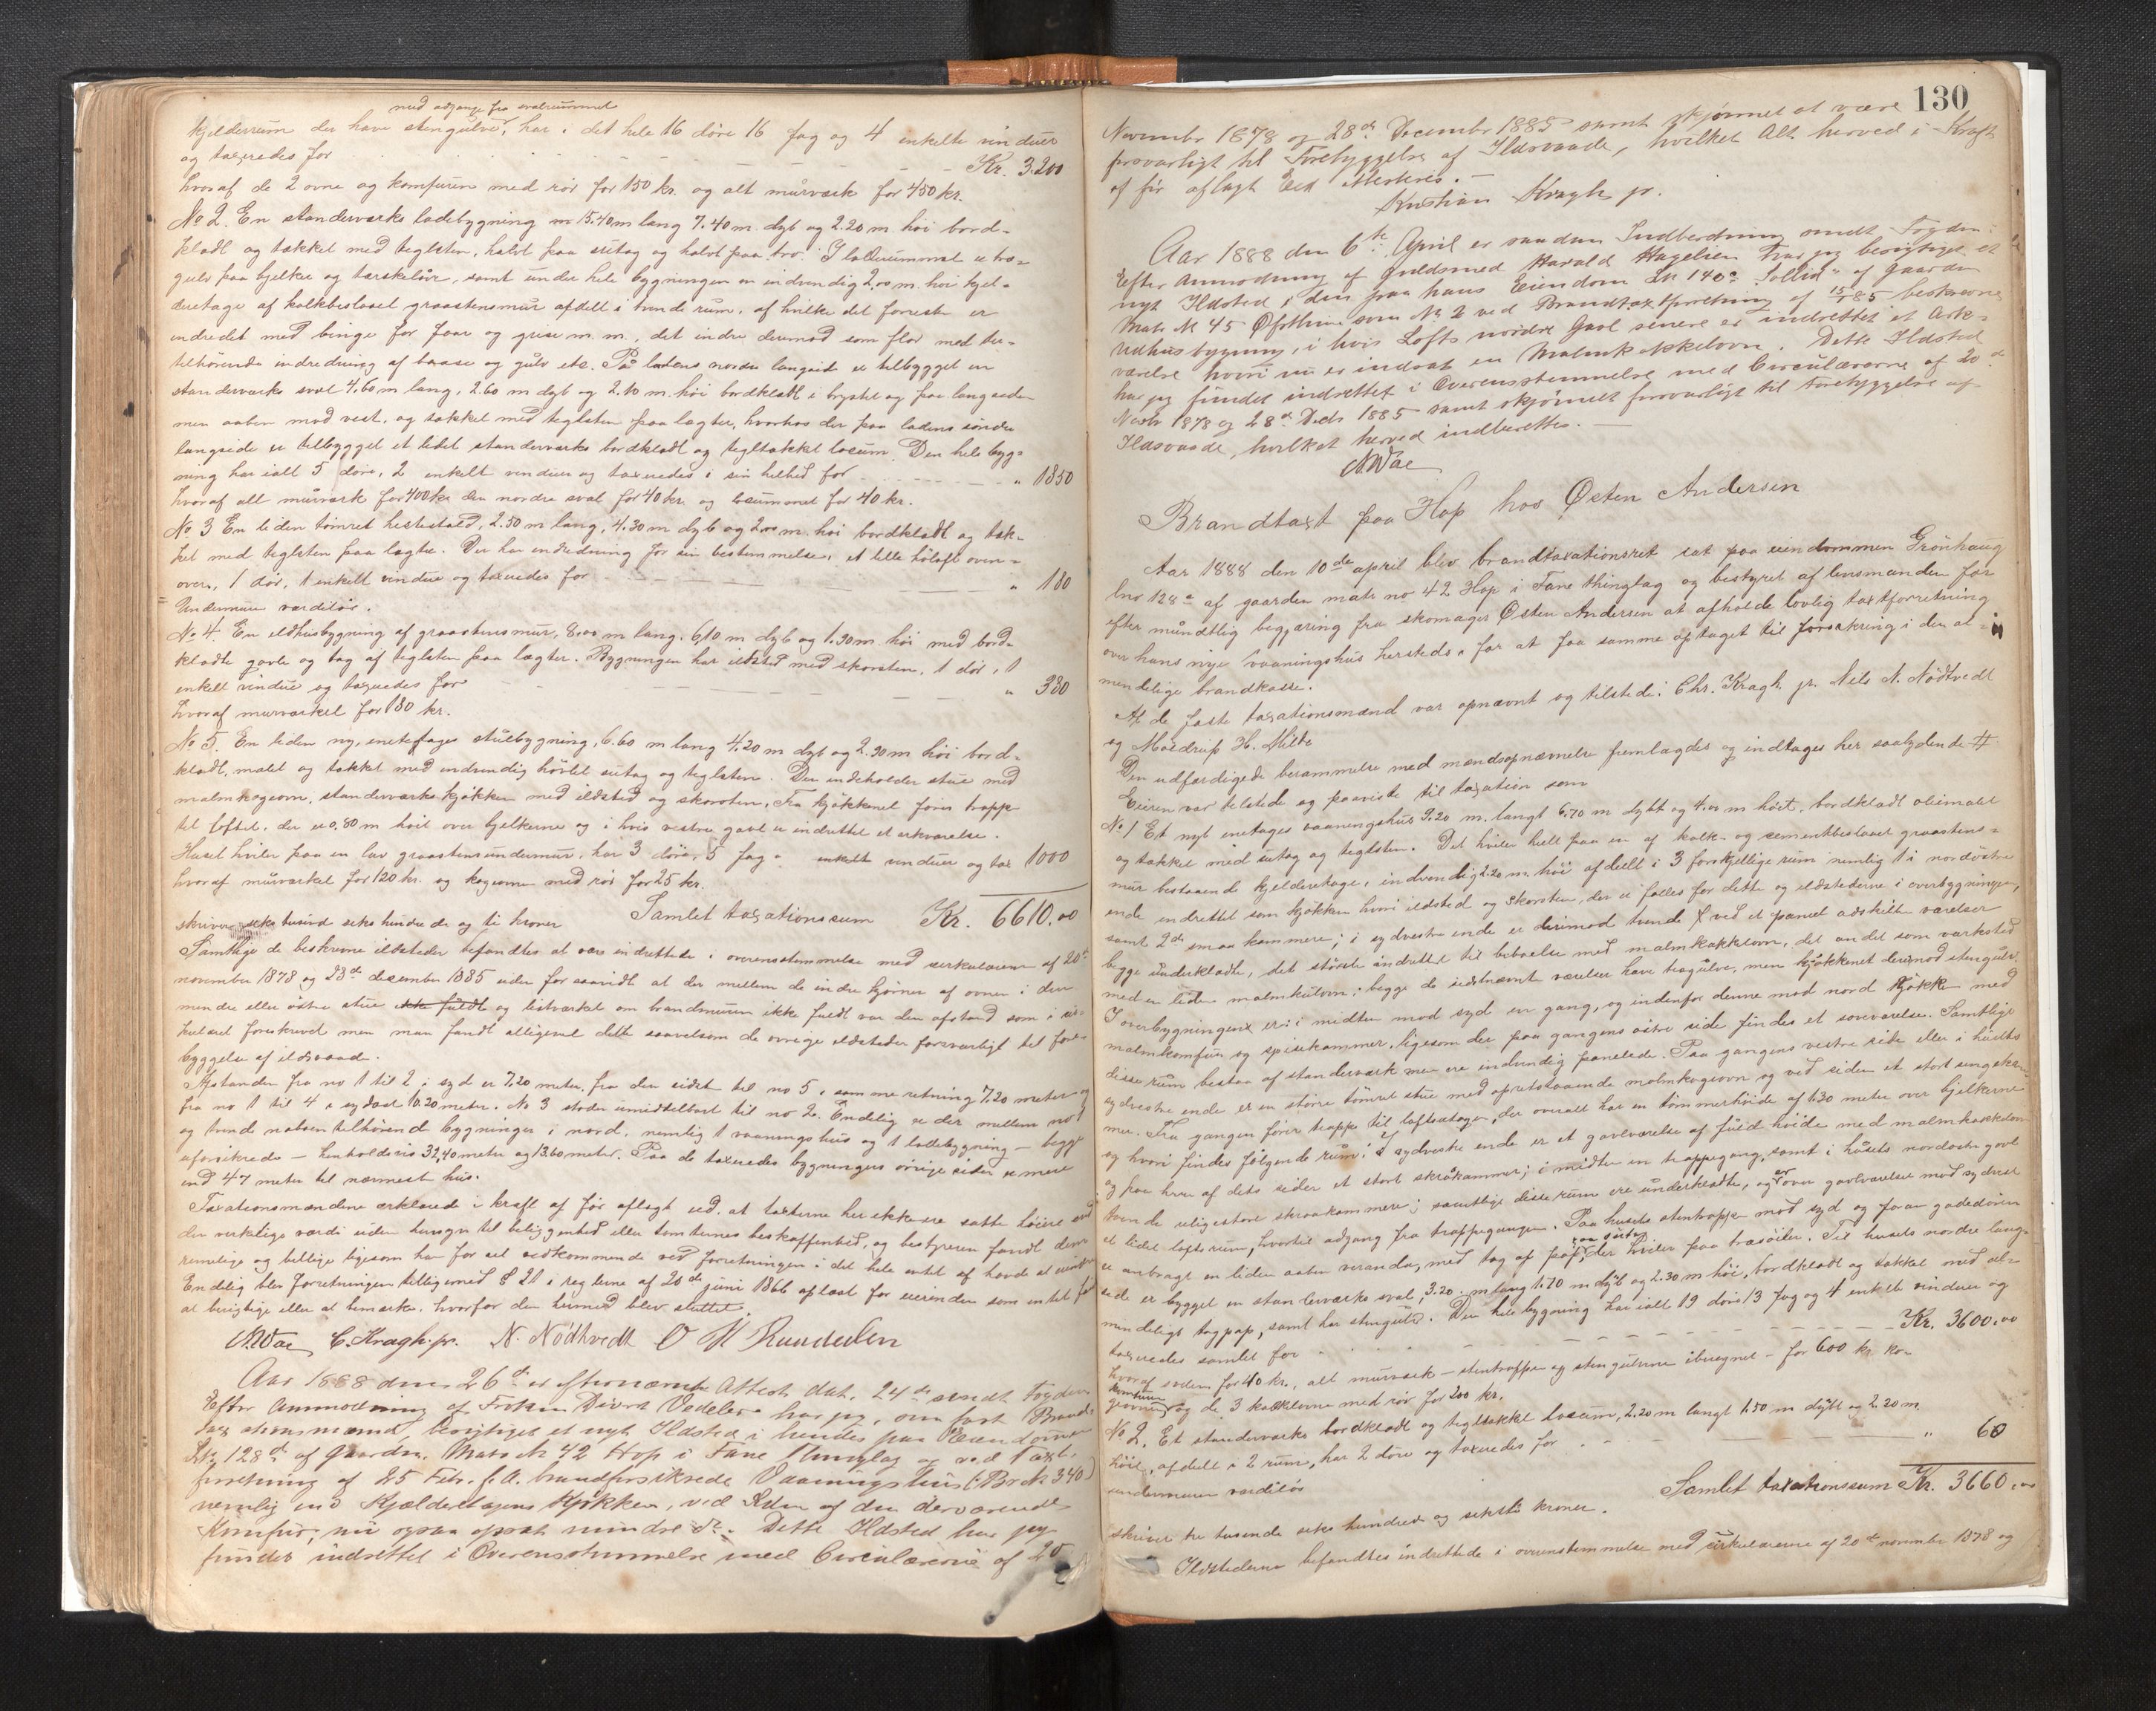 med adgang fra svalrummet
kjelderrum der have stengulve, har i det hele 16 döre 16 fag og 4 enkelte vinduer
og taxeredes for Kr. 3200
hvoraf de 2 ovne og komfuren med rör for 150 kr. og alt murværk for 450 kr.
No 2. En standerværks ladebygning 15.40 m lang 7.40 m. dyb og 2.20 m höi bord-
klædt og takket med teglsten, halvt paa sutag og halvt paa tro. I laderummet er træ-
gulv paa bjelker og tærskelåv, samt under hele bygningen en indvendig 2,00 m. höi kjel-
deretage af kalkbeslaaet graastensmur afdelt i tvende rum, af hvilke det forreste er
indredet med binge for faar og grise m. m., det indre derimod som flor med der-
tilhörende indredning af baase og gulv etc. På ladens nordre langside er tilbygget en
standerværks sval 4.60 m lang, 2.60 m dyb og 2.10 m. höi bordklædt i brystet og paa langsiden
men aaben mod vest, og takket med teglsten paa lægter, hvorhos der paa ladens söndre
langside er tilbygget et lidet standerværks bordklædt og tegltakket locum. Den hele byg-
ning har ialt 5 döre, 2 enkelt vinduer og taxeredes i sin helhed for " 1850
hvoraf alt murværk for 400 kr den nordre sval for 40 kr. og locummet for 40 kr.
No 3 En liden tömret hestestald, 2.50 m lang, 4.30 m dyb og 2,00 m. höi bordklædt og tak-
ket med teglsten paa lægter. Den har indredning for sin bestemmelse, et lille höloft oven-
over, 1 dör, 1 enkelt vindue og taxeredes for " 180
Undermuren værdilös.
No 4. En ildhusbygning af graastensmur, 8,00 m lang, 6,10 m dyb og 1.90 m. höi med bord-
klædte gavle og tag af teglsten paa lægter. Bygningen har ildsted med skorsten, 1 dör, 1
enkelt vindue og taxeredes for " 380
hvoraf murværket for 180 kr.
No 5. En liden ny, enetages stuebygning, 6.60 m lang 4.20 m dyb og 2.90 m höi bord-
klædt, malet og takket med indvendig hövlet sutag og teglsten. Den indeholder stue med
malmkogeovn, standerværks kjökken med ildsted og skorsten. Fra kjökkenet förer trappe
til loftet, der er 0,80 m höit over bjelkerne og i hvis vestre gavl er indrettet et arkværelse.
Huset hviler paa en lav graastensundermur, har 3 döre, 5 fag enkelt vinduer og tax 1000
hvoraf murværket for 120 kr. og kogeovnen med rör for 25 kr.
Samlet taxationssum Kr. 6610.00
skriver seks tusind seks hundrede og ti kroner
Samtlige de beskrevne ildsteder befandtes at være indrettede i overensstemmelse med cirkulærerne af 20de
november 1878 og 28de december 1885 uden forsaavidt at der mellem de indre hjörner af ovnen i den
mindre eller östre stue ikke fuldt og listværket om brandmuren ikke fuldt var den afstand som i cir-
kulæret foreskrevet men man fandt alligevel dette saavelsom de övrige ildsteder forsvarligt til fore-
byggelse af ildsvaade.
Afstanden fra no 1 til 2 i syd er 7,20 meter, fra den sidste til no 5 i samme retning 7,20 meter og
fra no 1 til 4 i sydöst 10.20 meter. No 3 stöder umiddelbart til no 2. Endelig er der mellem no 1
og tvende naboen tilhörende bygninger i nord, nemlig 1 vaaningshus og 1 ladebygning – begge
uforsikrede – henholdsvis 32,40 meter og 13.60 meter. Paa de taxeredes bygningers övrige sider er mere
end 47 meter til nærmest hus.
Taxationsmændene erklærede i kraft af för aflagt ed, at taxterne her ikke ere satte höiere end
den virkelige værdi uden hensyn til beliggenhed eller tomternes beskaffenhed, og bestyreren fandt dem
rimelige og billige ligesom han for sit vedkommende ved forretningen i det hele intet af havde at erindre
Endelig blev forretningen tilligemed § 21 i reglerne af 20de juni 1866 oplæst for eierinden som intet fandt
at berigtige eller at bemærke, hvorfor den hermed blev sluttet.
A. Wae C. Kragh jr. N. Nödtvedt O H Rundhovden
Aar 1888 den 26de er efternævnte Attest dat. 24de sendt Fogden
Efter Anmodning af Fröken Divert Vedeler har jeg, som fast Brand-
taxationsmand, besigtiget et nyt Ildsted i hendes paa Eiendommen
L No 128d af Gaarden Matr № 42 Hop i Fane Thinglag og ved Taxt-
forretning af 25 Febr. f. A. brandforsikrede Vaaningshus (Br № 340)
nemlig en i Kjælderetagens Kjökken, ved Siden af den derværende
Komfur, nu ogsaa opsat mindre do. Dette Ildsted har jeg
fundet indrettet i Overensstemmelse med Circulærerne af 20
130
November 1878 og 28de December 1885 samt skjönnet at være
forsvarligt til Forebyggelse af Ildsvaade, hvilket Alt herved i Kraft
af för aflagt Eed attesteres. –
Kristian Kragh jr.
Aar 1888 den 6te April er saadan Indberetning sendt Fogden:
Efter Anmodning af Guldsmed Harald Hagelsen har jeg besigtiget et
nyt Ildsted i den paa hans Eiendom L№ 140c "Solli" af Gaarden
Matr № 45 Öfsthun som № 2 ved Brandtaxtforretning af 15/1 85 beskrevne
Udhusbygning, i hvis Lofts nordre Gavl senere er indrettet et Ark-
værelse hvori nu er indsat en Malmkakkelovn. Dette Ildsted
har jeg fundet indrettet i Overensstemmelse med Circulærerne af 20de
Novbr 1878 og 28de Decbr 1885 samt skjönnet forsvarligt til Forebyggelse af
Ildsvaade, hvilket herved indberettes. –
A. Wae
Brandtaxt paa Hop hos Østen Andersen
Aar 1888 den 10de april blev brandtaxationsret sat paa eiendommen Grönhaug
lnr 128e af gaarden matr no 42 Hop i Fane thinglag og bestyret af lensmanden for
efter mundtlig begjæring fra skomager Østen Andersen at afholde lovlig taxtforretning
over hans nye vaaningshus hersteds, for at faa samme optaget til forsikring i den al-
mindelige brandkasse.
Af de faste taxationsmænd var opnævnt og tilstede: Chr. Kragh jr. Nils N. Nödtvedt
og Mordrup H. Milde
Den udfærdigede berammelse med mændsopnævnelse fremlagdes og indtages her saalydende #
Eieren var tilstede og paaviste til taxation som
No 1 Et nyt enetages vaaningshus 9.20 m. langt 6.70 m dybt og 4.00 m höit, bordklædt oliemalet
og takket med sutag og teglsten. Det hviler helt paa en af kalk- og cementbeslaaet graastens-
mur bestaaende kjelderetage, indvendig 2.20 m. höi afdelt i 3 forskjellige rum nemlig 1 i nordöstre
ende indrettet som kjökken hvori ildsted og skorsten, der er fælles for dette og ildstederne i overbygningen,
samt 2de smaa kammere; i sydvestre ende er derimod tvende ved et panel adskilte værelser
begge underklædte, det störste indrettet til beboelse med malmkakkelovn, det andet som værksted
med en liden malmkulovn; begge de sidstnævnte værelser have trægulve, men kjökkenet derimod stengulv.
I overbygningen er: i midten mod syd en gang, og indenfor denne mod nord kjökken med
malmkomfur og spisekammer, ligesom der paa gangens östre side findes et soveværelse. Samtlige
disse rum bestaa af standerværk men ere indvendig panelede. Paa gangens vestre side eller i husets
sydvestre ende er en större tömret stue med opretstaaende malmkogeovn og ved siden et stort sengekam-
mer. Fra gangen förer trappe til loftsetagen, der overalt har en tömmerhöide af 1.20 meter over bjelkerne
og hvori findes fölgende rum: I sydvestre ende er et gavlværelse af fuld höide med malmkakkelovn
og paa hver af dets sider et stort skråkammer; i midten en trappegang, samt i husets nordöstre gavl
tvende uligestore skraakammere; samtlige disse rum ere underklædte, og er over gavlværelset mod sydvest
et lidet loftsrum, hvortil adgang fra trappegangen. Paa husets stentrappe mod syd og foran gadedören
er anbragt en liden aaben veranda, med tag af pap paa sutag, der hviler paa træsöiler. Til husets nordre lang-
side er bygget en standerværks sval, 3.20 m lang 1.70 m dyb og 2.30 m höi, bordklædt og takket med al-
mindeligt tagpap, samt har stengulv. Den hele bygning har ialt 19 döre 13 fag og 4 enkelte vinduer og
taxeredes samlet for Kr. 3600.00
hvoraf svalen for 40 kr., alt murværk – stentrappe og stengulvene iberegnet – for 600 kr. ko-
komfuren
geovnen og de 3 kakkelovne med rör for 200 kr.
No 2. Et standerværks bordklædt og tegltakket locum, 2.20 m langt 1.50 m dybt og 2.20 m
höit, afdelt i 2 rum, har 2 döre og taxeredes for " 60
undermuren værdilös
Samlet taxationssum Kr. 3660.00
skriver tre tusende seks hundrede og seksti kroner.
Ildstederne befandtes indrettede i overensstemmelse med cirkulærerne af 20de november 1878 og